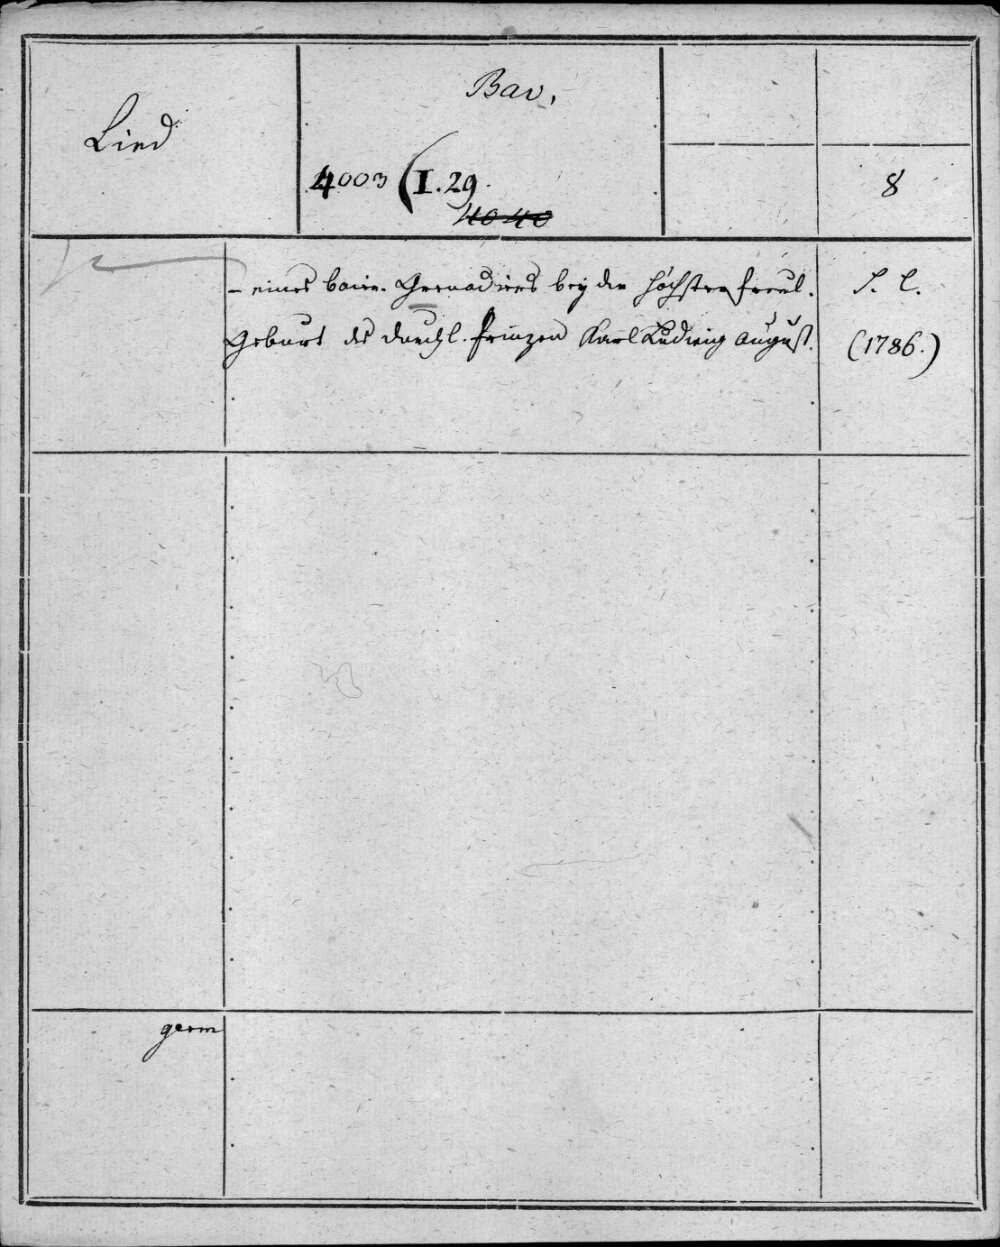 Lied
Bav.
4003 (I. 29.
4040
8
– eines baier. Grenadiers bey der höchsterfreul.
Geburt des durchl. Prinzen Karl Ludwig August.
S. l.
(1786.)
germ